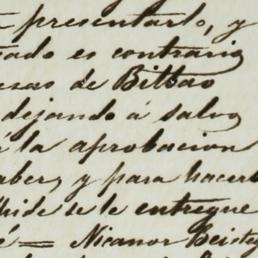 presentarlo, y
es contrario
de Bilbao
dejando á salvo
la aprobacion
y para hacerl
se le entregue
= Nicanor Beiste